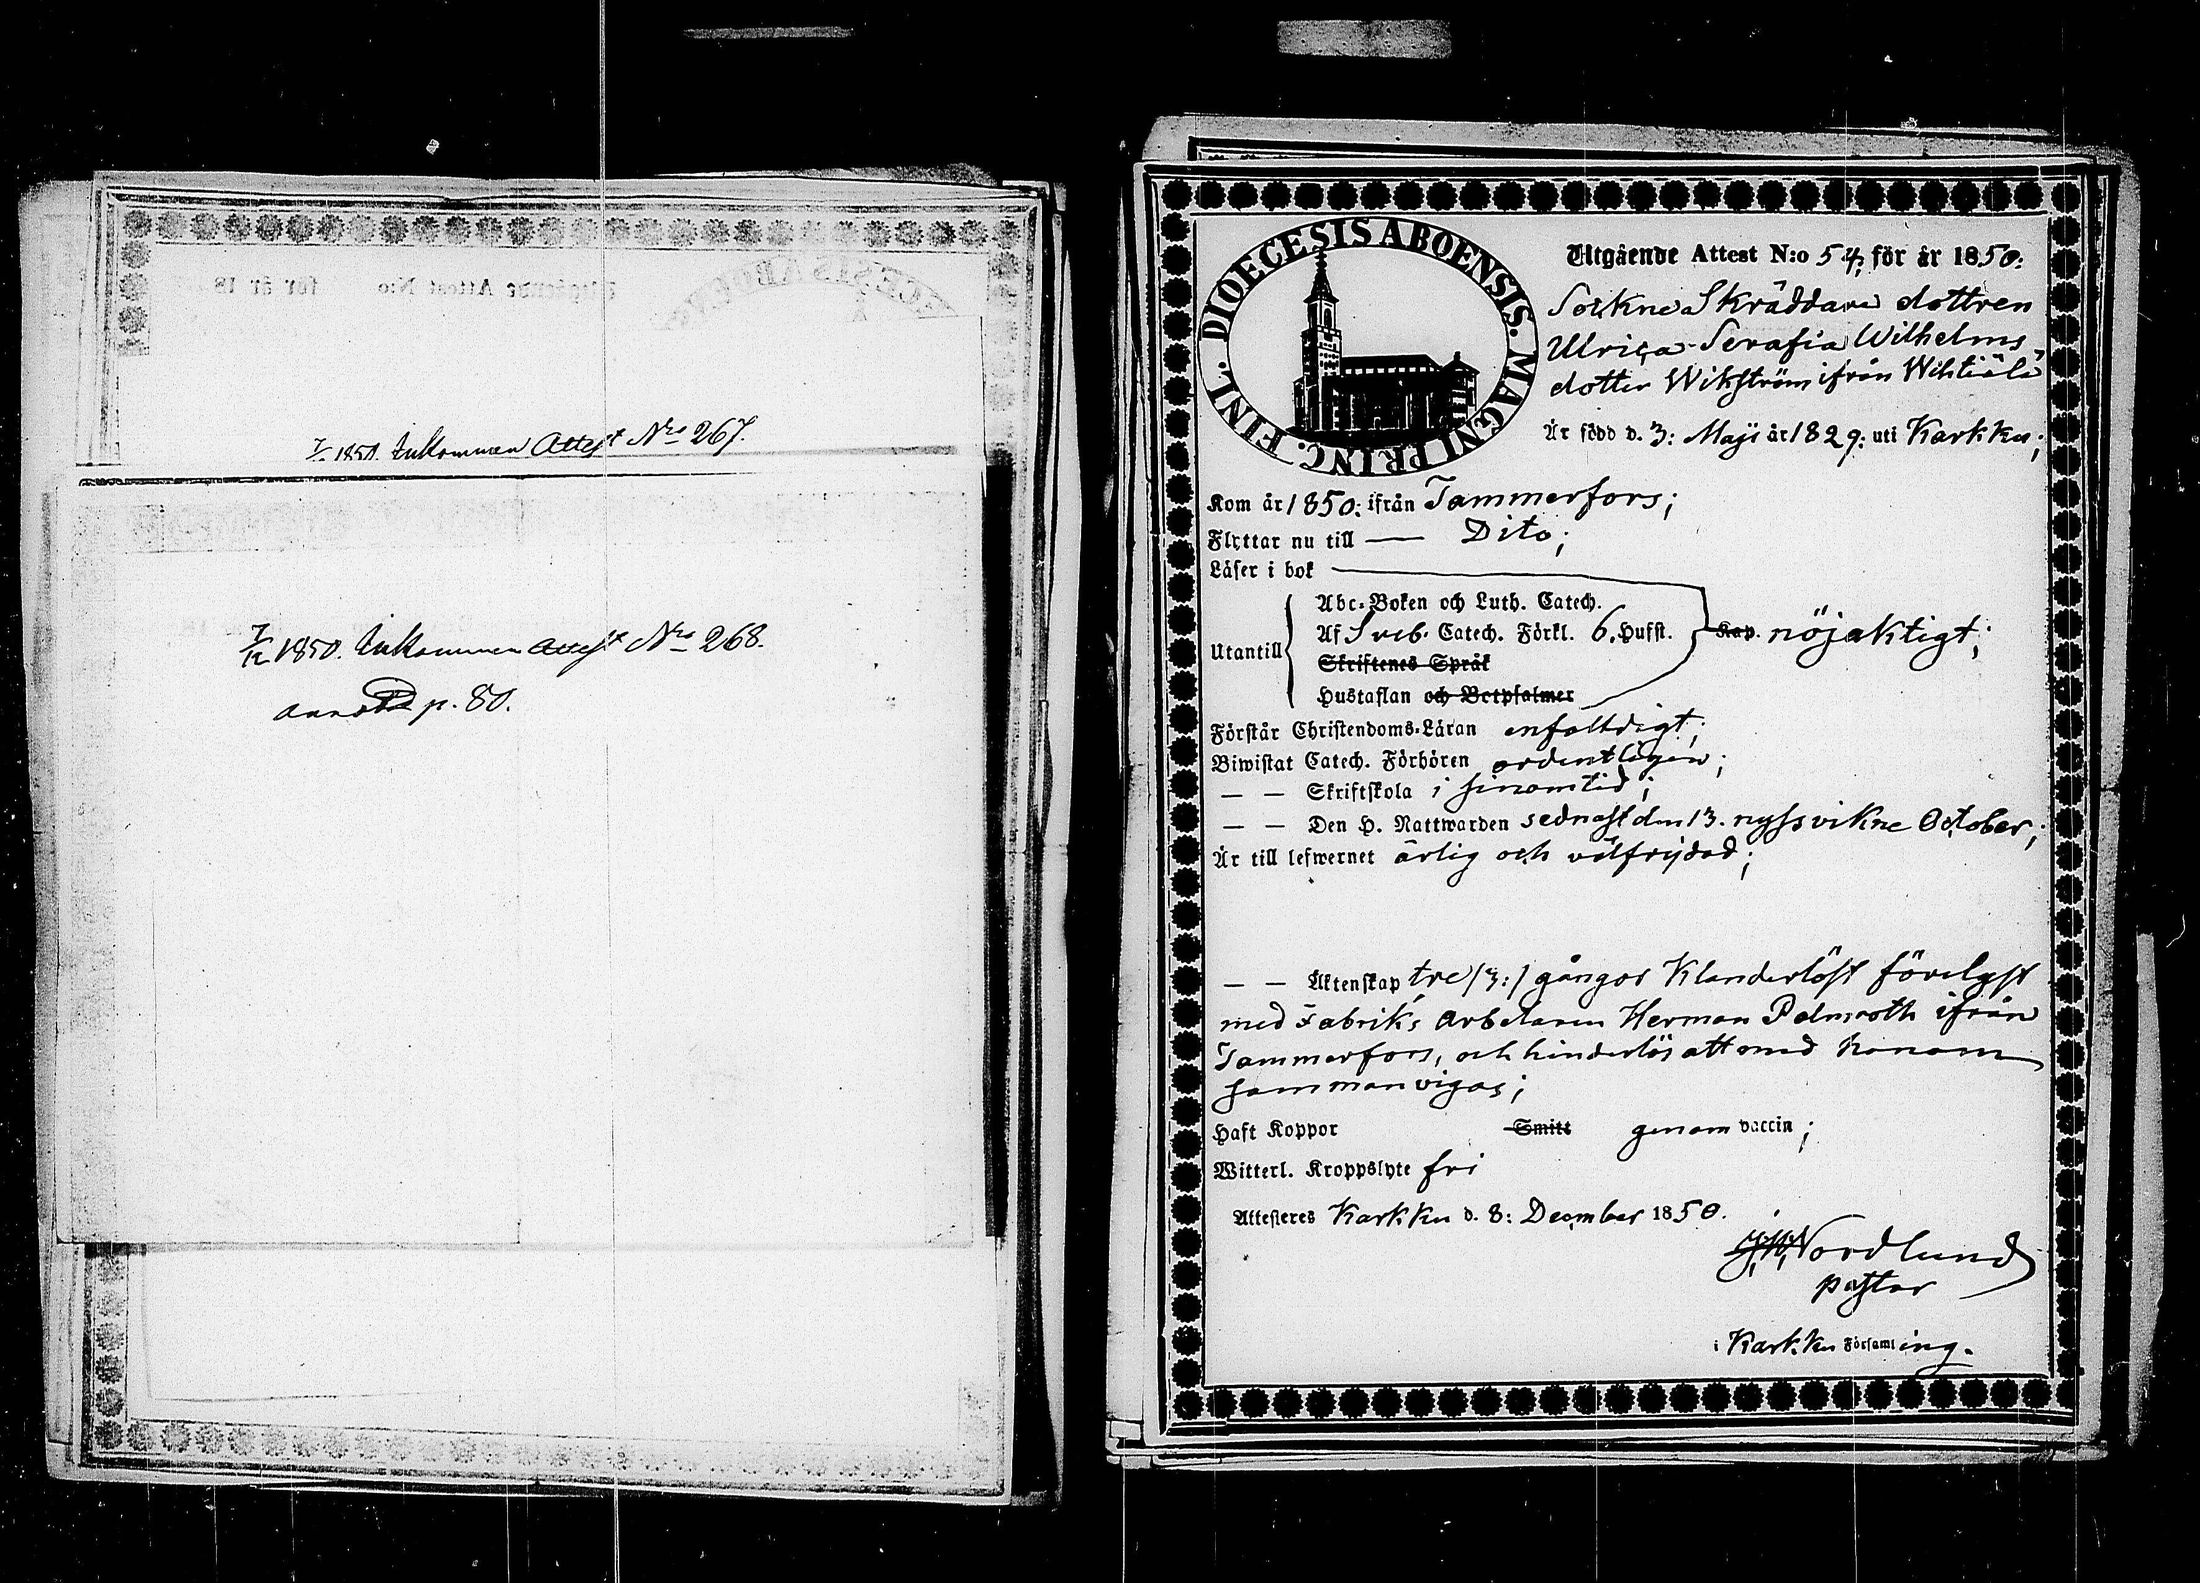 1850. Inkommen Attest Nro 267.
7/12 1850. Inkommen Attest Nro 268.
p. 80.
DIOECESIS ABOENSIS. MAGNI PRINC. FINL.
Utgående Attest N:o 54; för år 1850:
Sockne Skräddare dottren
Ulrica Serafia Wilhelms
dotter Wikström ifrån Wihtiälä
Är född d. 3: Maji år 1829: uti Karkku;
Kom år 1850: ifrån Tammerfors;
Flyttar nu till — Dito;
Läser i bok
Abc-Boken och Luth. Catech.
Utantill Af Sveb. Catech. Förkl. 6. Hufst. Kap. nöjaktigt;
Skriftenes Språk
Hustaflan och Botpsalmer
Förstår Christendoms-Läran enfaldigt;
Biwistat Catech. Förhören ordentligen;
— — Skriftskola i sinom tid;
— — Den H. Nattwarden sednast den 13. nyss vikne October;
Är till lefwernet ärlig och välfrejdad;
— — Äktenskap tre /3:/ gångor Klanderlöst förelyst
med Fabriks Arbetaren Herman Palmroth ifrån
Tammerfors, och hinderlös att med honom
samman vigas;
Haft Koppor Smitt genom vaccin;
Witterl. Kroppslyte fri
Attesteras Karkku d. 8: December 1850.
Nordlund
pastor
i Karkku Församling.